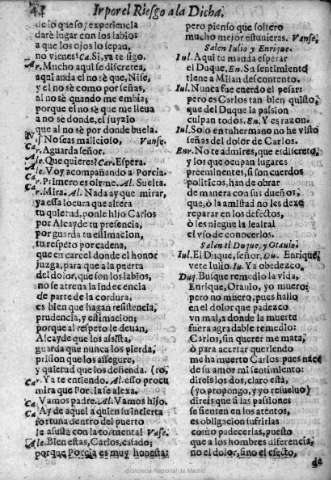 Ir por el Riesgo a la Dicha.
de lo que so, experiencia
darè lugar con los labios
a que los ojos lo sepan,
no vienes? Ca. Si, ya te sigo.
Mucho aqui se discretea,
aqui anda el no se què, Nise,
y el no sè como por señas,
al no sè quando me embia;
porque el no sè que me lleva
a no se donde, si suyalo
que al no sè por donde buela.
No seas malicioso. Vanse.
Car. Aguarda señor.
Al. Que quieres? Car. Espera.
Al. Voy acompañando a Porcia.
Car. Primero es oirme. Al. Suelta.
Car. Mira. Al. Nada ay que mirar,
ya essa locura que altera
tu quietad, ponle hijo Carlos
por Alcayde tu presencia,
por guarda tu estimacion,
tu respeto por cadena,
que en carcel donde el honor
juzga, para que a la puerta
del dolor, que son los labios,
no se atreva la indecencia
de parte de la cordura,
es bien que hagan resistencia,
prudencia, y estimacion;
porque al respeto le devan,
Alcayde que los assista,
guarda que nunca los pierda,
prision que los assegure,
y quietad que los defienda.
Car. Ya te entiendo. Al. esso procu
mira que Porcia se alexa.
Ca. Vamos padre. Al. Vamos hijo.
Ca. Ay de aquel a quien su incierta
fortuna dentro del puerto
le assusta con la tormenta! Vase.
Ale. Bien estas, Carlos, casado;
porque Porcia es muy honesta:
pero pienso que soltero
mucho mejor estuvieras. Vanse.
Salen Iulio y Enrique.
Iul. Aqui te manda esperar
el Duque. En. Su sentimiento
tiene a Milan descontento.
Iul. Nunca fue cuerdo el pesar:
pero es Carlos tan bien quisto,
que del Duque la passion
culpan todos. En. Y es razon.
Iul. Solo en tu hermano no he visto
señas del dolor de Carlos.
Enr. No te admires, que es discreto,
y los que ocupan lugares
preeminentes, si son cuerdos
politicos, han de obrar
de manera con sus dueños,
que, ò la amistad no les dexe
reparar en los defectos,
ò les niegue la lealtad
el vso de conocerlos.
Salen el Duque, y Otauio.
Iul. El Duque, señor. Du. Enrique,
vete Iulio. Iu. Ya obedezco.
Duq. Busque remedio la vida,
Enrique, Otauio, yo muero;
pero no muero, pues hallo
en el dolor que padezco
vn mal, a donde la muerte
fuera agradable remedio:
Carlos, sin querer me mata,
ò para acertar queriendo
me ha muerto Carlos pues nace
de su amor mi sentimiento:
direis los dos, claro està,
(yo propongo, y yo resuelvo)
direis que si las passiones
se sienten en los atentos,
es obligacion sufrirlas
como padecerlas, puesto
que a los hombres diferencia,
no el dolor, sino el efecto,
Biblioteca Nacional de Madrid